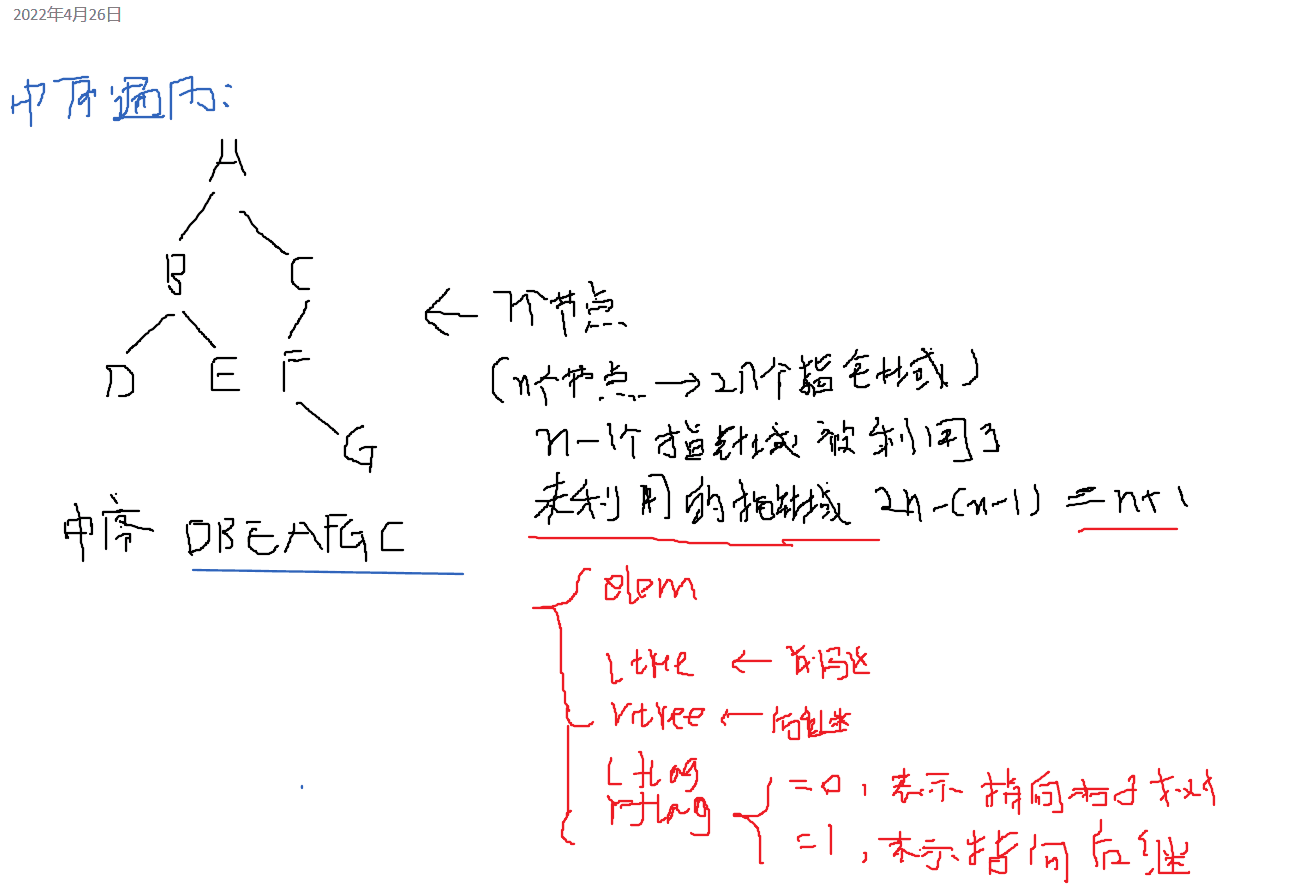 2022年4月26日
中序遍历:
A
B C
D E F
G
← 7个节点
(n个节点 → 2n个指针域)
n-1个指针域被利用了
未利用的指针域 2n-(n-1) = n+1
中序 DBEAFGC
elem
ltree ← 前驱
rtree ← 后继
lflag
rflag
=0, 表示指向右子树
=1, 表示指向后继